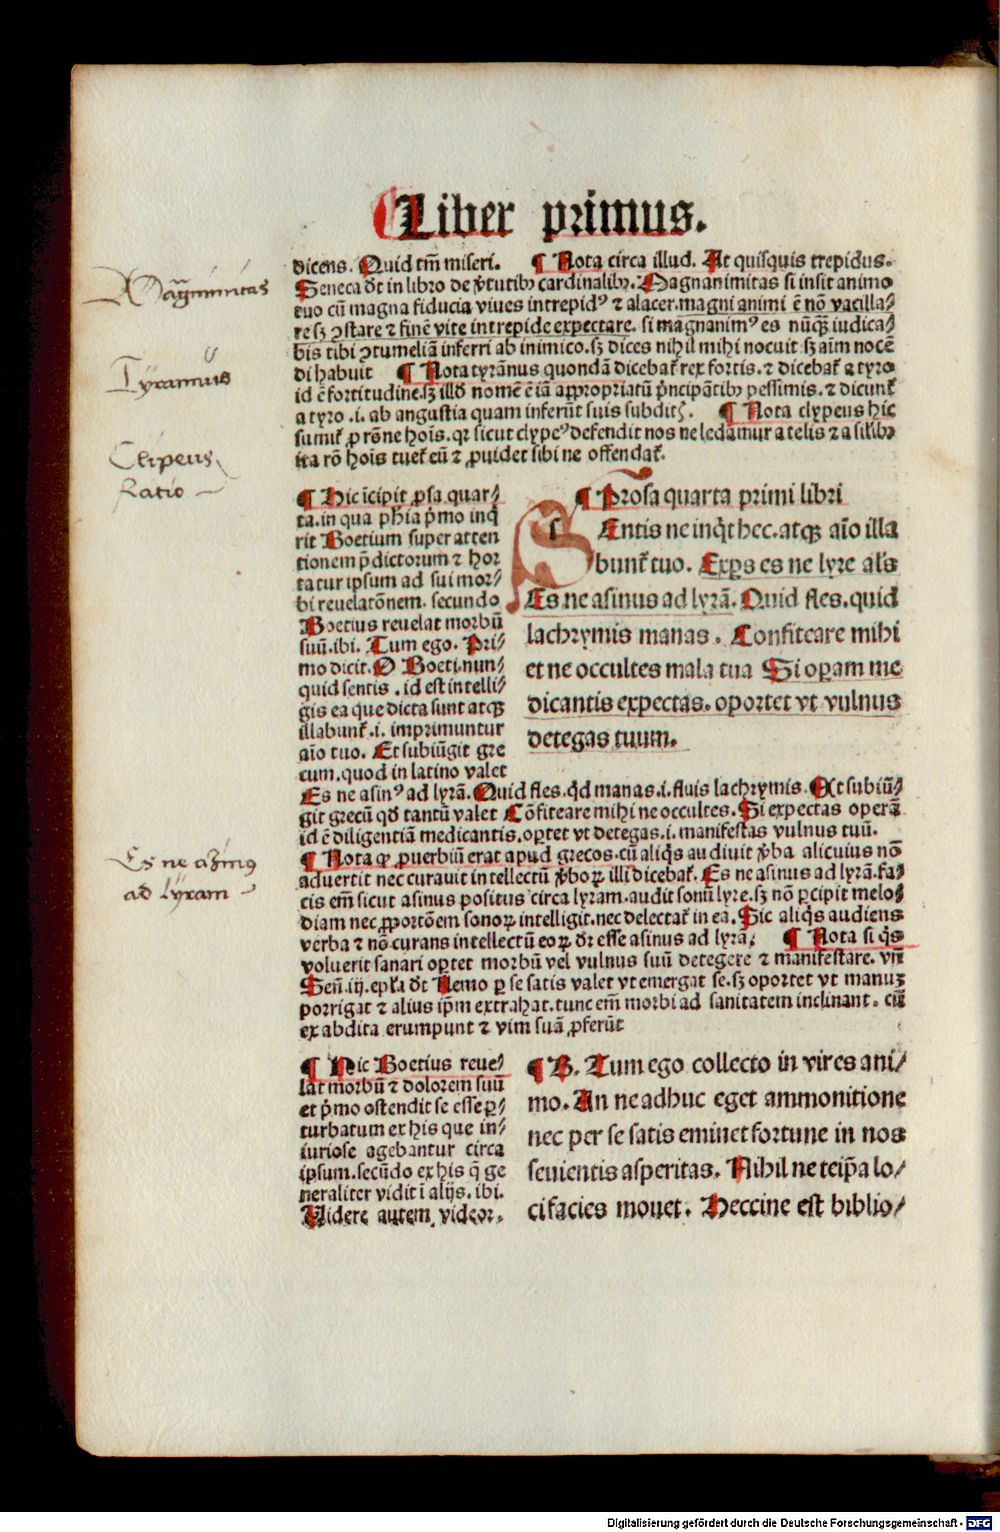 Liber primus.
dicens. Quid tm̄ miseri. ¶ Nota circa illud. At quisquis trepidus.
Seneca dt in libro de v̓tutibꝰ cardinalibꝰ. Magnanimitas si insit animo
tuo cū magna fiducia viues intrepidꝰ ⁊ alacer. magni animi ē nō vacilla⸗
re sꝫ ꝯstare ⁊ finē vite intrepide expectare. si magnanimꝰ es nūqꝫ iudica⸗
bis tibi ꝯtumeliā inferri ab inimico. sꝫ dices nihil mihi nocuit sꝫ aīm nocē
di habuit ¶ Nota tyrānus quondā dicebat̃ rex fortis. ⁊ dicebat̃ a tyro
id ē fortitudine. sꝫ illđ nomē ē iā appropriatū p̓ncipātibꝰ pessimis. ⁊ dicunt̃
a tyro .i. ab angustia quam inferūt suis subditꝭ. ¶ Nota clypeus hic
sumit̃ ꝓ rōne hoīs. qr sicut clypeꝰ defendit nos ne ledamur a telis ⁊ a silibꝰ
ita rō hoīs tuet̃ eū ⁊ ꝓuidet sibi ne offendat̃.
Magnanimitas
Tyrannus
Clipeus
Ratio
¶ Hic īcipit ꝓsa quar⸗
ta. in qua phīa p̓mo inq̓
rit Boetium super atten
tionem p̄dictorum ⁊ hor
tatur ipsum ad sui mor⸗
bi reuelatōnem. secundo
Boetius reuelat morbū
suū. ibi. Tum ego. Pri⸗
mo dicit. O Boeti. nun⸗
quid sentis . id est intelli⸗
gis ea que dicta sunt atqꝫ
illabunt̃ .i. imprimuntur
aīo tuo. Et subiūgit gre
cum. quod in latino valet
¶ Prosa quarta primi libri
Sentis ne inq̓t hec. atqꝫ aīo illa
bunt̃ tuo. Exꝑs es ne lyre als̄
Es ne asinus ad lyrā. Quid fles. quid
lachrymis manas. Confiteare mihi
et ne occultes mala tua Si oꝑam me
dicantis expectas. oportet vt vulnus
detegas tuum.
Es ne asinꝰ ad lyrā. Quid fles. qđ manas .i. fluis lachrymis. Et subiū⸗
git grecū qđ tantū valet Cōfiteare mihi ne occultes. Si expectas operā
id ē diligentiā medicantis. oꝑtet vt detegas .i. manifestas vulnus tuū.
¶ Nota ꝙ ꝓuerbiū erat apud grecos. cū aliq̓s audiuit v̓ba alicuius nō
aduertit nec curauit intellectū v̓boꝝ illi dicebat̃. Es ne asinus ad lyrā. fa⸗
cis em̄ sicut asinus positus circa lyram. audit sonū lyre. sꝫ nō ꝑcipit melo⸗
diam nec ꝓportōem sonoꝝ intelligit. nec delectat̃ in ea. Sic aliq̓s audiens
verba ⁊ nō curans intellectū eoꝝ dr̄ esse asinus ad lyrā. ¶ Nota si q̓s
voluerit sanari oꝑtet morbū vel vulnus suū detegere ⁊ manifestare. vn̄
Señ. iij. epl̄a dt Nemo ꝑ se satis valet vt emergat se. sꝫ oportet vt manuꝫ
porrigat ⁊ alius ip̄m extrahat. tunc em̄ morbi ad sanitatem inclinant. cū
ex abdita erumpunt ⁊ vim suā ꝓferūt
Es ne asinus
ad lyram
¶ Hic Boetius reue⸗
lat morbū ⁊ dolorem suū
et p̓mo ostendit se esse ꝑ⸗
turbatum ex his que in⸗
iuriose agebantur circa
ipsum. secūdo ex his q̄ ge
neraliter vidit ī alijs. ibi.
Videre autem videor.
¶ B. Tum ego collecto in vires ani⸗
mo. An ne adhuc eget ammonitione
nec per se satis eminet fortune in nos
seuientis asperitas. Nihil ne te ip̄a lo⸗
ci facies mouet. Heccine est biblio⸗
Digitalisierung gefördert durch die Deutsche Forschungsgemeinschaft - DFG